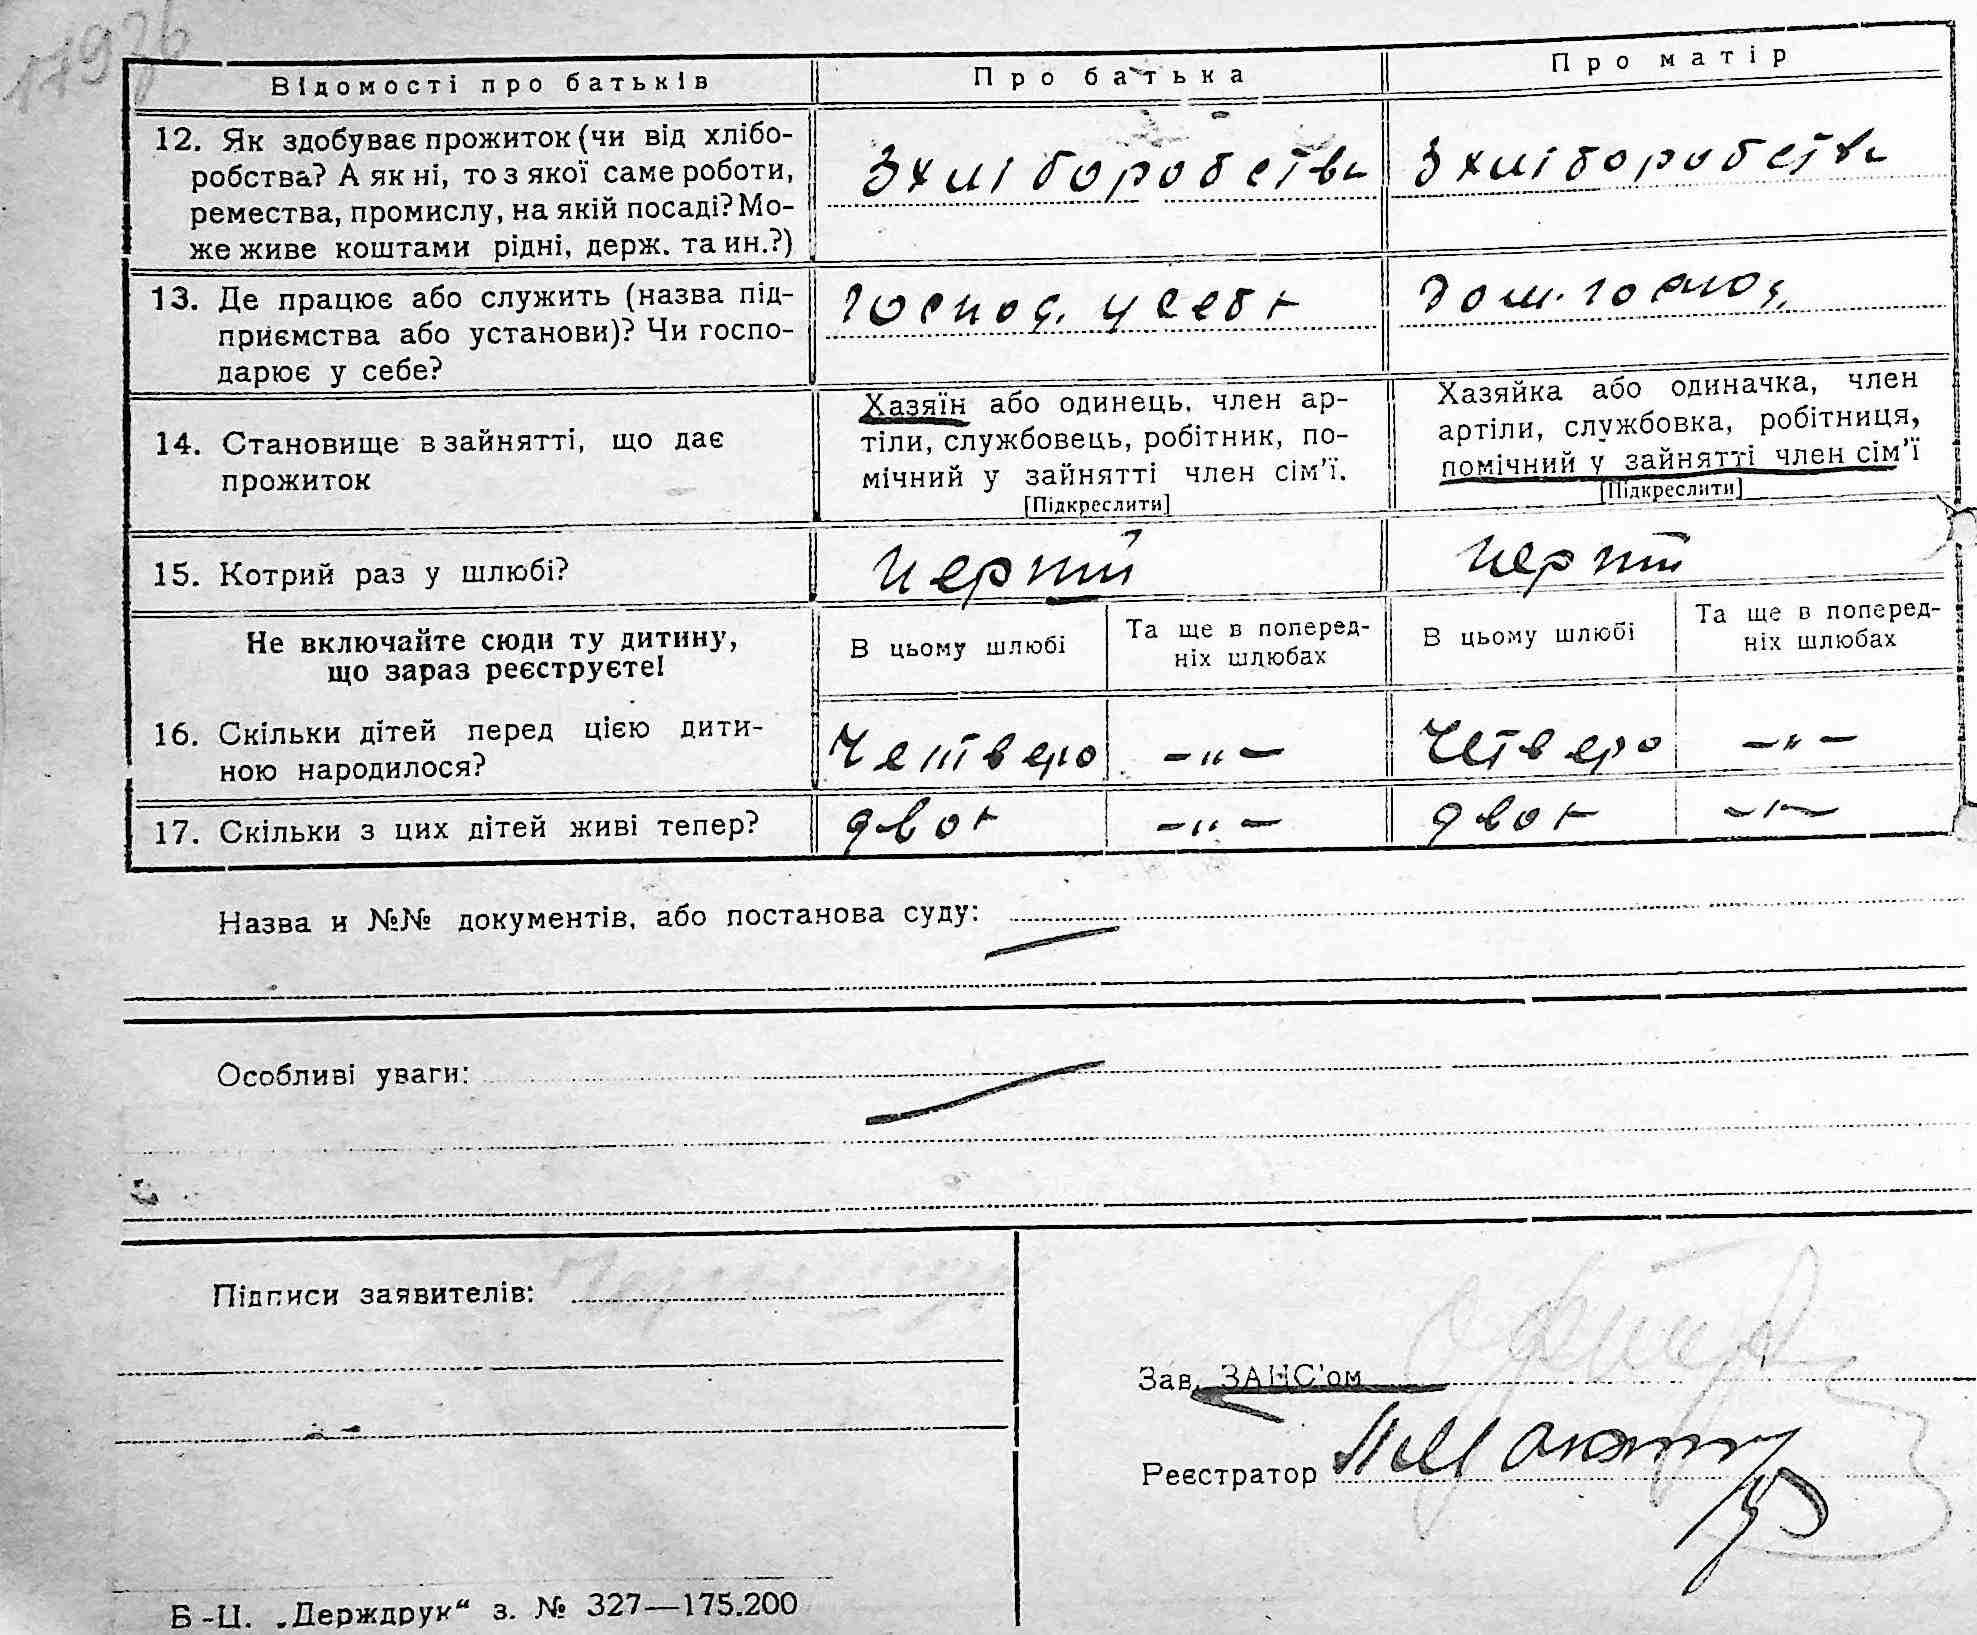 Відомості про батьків
Про батька
Про матір
12. Як здобуває прожиток (чи від хлібо-
робства? А як ні, то з якої саме роботи,
ремества, промислу, на якій посаді? Мо-
же живе коштами рідні, держ. та ин.?)
З хліборобства
З хліборобства
13. Де працює або служить (назва під-
приємства або установи)? Чи госпо-
дарює у себе?
господ. у себе
дом. господ.
14. Становище в зайнятті, що дає
прожиток
Хазяїн або одинець, член ар-
тіли, службовець, робітник, по-
мічний у зайнятті член сім'ї.
[Підкреслити]
Хазяйка або одиначка, член
артіли, службовка, робітниця,
помічний у зайнятті член сім'ї
[Підкреслити]
15. Котрий раз у шлюбі?
Не включайте сюди ту дитину,
що зараз реєструєте!
В цьому шлюбі
Та ще в поперед-
ніх шлюбах
В цьому шлюбі
Та ще в поперед-
ніх шлюбах
16. Скільки дітей перед цією дити-
ною народилося?
Четверо
—„—
Четверо
—„—
17. Скільки з цих дітей живі тепер?
двоє
—„—
двоє
—„—
Назва и №№ документів, або постанова суду:
Особливі уваги:
Підписи заявителів:
Зав. ЗАНС'ом
Реєстратор
Б-Ц. „Держдрук“ з. № 327—175.200